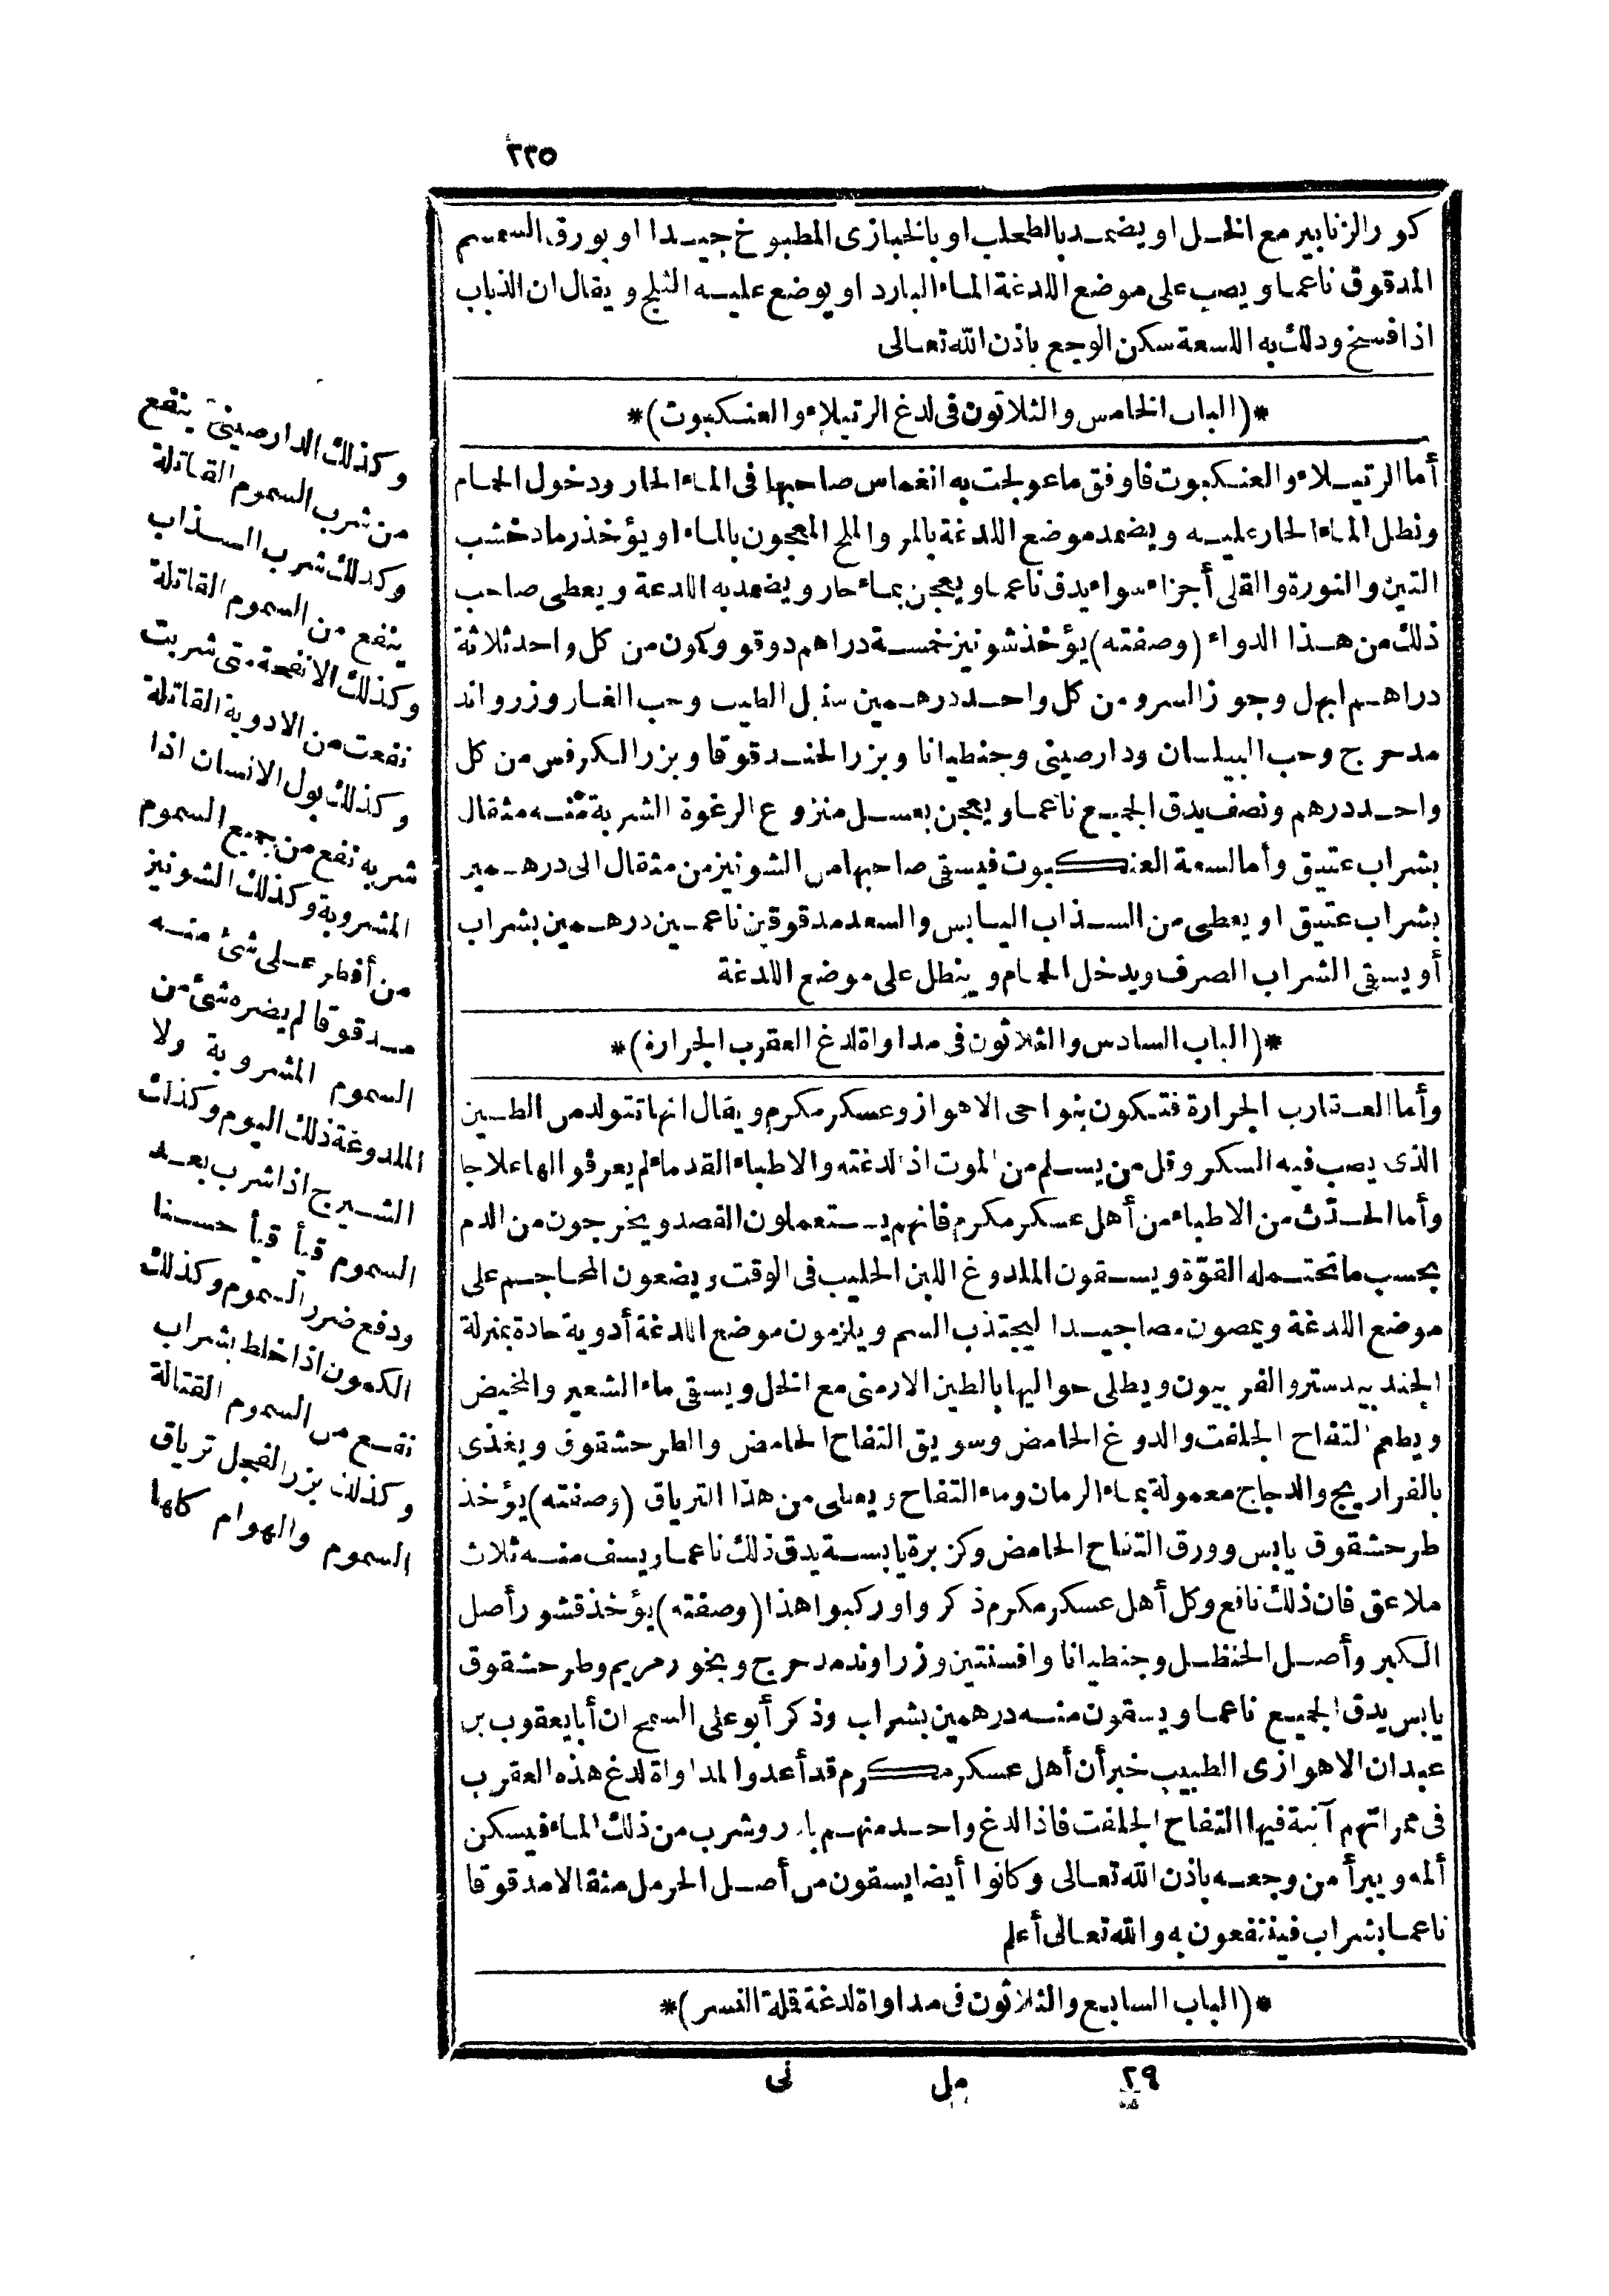 ٢٢٥
كور الزنابير مع الخل او يضمد بالطحلب او بالخبازى المطبوخ جيدا او بورق السمسم
المدقوق ناعما ويصب على موضع اللدغة الماء البارد او يوضع عليه الثلج ويقال ان الذباب
اذا فسخ ودلك به اللسعة سكن الوجع باذن الله تعالى
*(الباب الخامس والثلاثون فى لدغ الرتيلاء والعنكبوت)*
أما الرتيلاء والعنكبوت فاوفق ما عولجت به انغماس صاحبها فى الماء الحار ودخول الحمام
ونطل الماء الحار عليه ويضمد موضع اللدغة بالمر والملح المعجون بالماء او يؤخذ رماد خشب
التين والنورة والقلى أجزاء سواء يدق ناعما ويعجن بماء حار ويضمد به اللدغة ويعطى صاحب
ذلك من هذا الدواء (وصفته) يؤخذ شونيز خمسة دراهم دوقو وكمون من كل واحد ثلاثة
دراهم ابهل وجوز السرو من كل واحد درهمين سنبل الطيب وحب الغار وزرواند
مدحرج وحب البيلسان ودارصينى وجنطيانا وبزر الحندقوقا وبزر الكرفس من كل
واحد درهم ونصف يدق الجميع ناعما ويعجن بعسل منزوع الرغوة الشربة منه مثقال
بشراب عتيق وأما لسعة العنكبوت فيسقى صاحبها من الشونيز من مثقال الى درهمين
بشراب عتيق او يعطى من السذاب اليابس والسعد مدقوقين ناعمين درهمين بشراب
أو يسقى الشراب الصرف ويدخل الحمام وينطل على موضع اللدغة
*(الباب السادس والثلاثون فى مداواة لدغ العقرب الجرارة)*
وأما العقارب الجرارة فتكون بنواحى الاهواز وعسكر مكرم ويقال انها تتولد من الطين
الذى يصب فيه السكر وقل من يسلم من الموت اذا لدغته والاطباء القدماء لم يعرفوا لها علاجا
وأما الحدث من الاطباء من أهل عسكر مكرم فانهم يستعملون الفصد ويخرجون من الدم
بحسب ما تحتمله القوّة ويسقون الملدوغ اللبن الحليب فى الوقت ويضعون المحاجم على
موضع اللدغة ويمصون مصا جيدا ليجتذب السم ويلزمون موضع اللدغة أدوية حادة بمنزلة
الجندبيدستر والفربيون ويطلى حواليها بالطين الارمنى مع الخل ويسقى ماء الشعير والمخيض
ويطعم التفاح الجلفت والدوغ الحامض وسويق التفاح الحامض والطرحشقوق ويغذى
بالفراريج والدجاج معمولة بماء الرمان وماء التفاح ويعطى من هذا الترياق (وصفته) يؤخذ
طرحشقوق يابس وورق التفاح الحامض وكزبرة يابسة يدق ذلك ناعما ويسف منه ثلاث
ملاعق فان ذلك نافع وكل أهل عسكر مكرم ذكروا وركبوا هذا (وصفته) يؤخذ قشور أصل
الكبر وأصل الحنظل وجنطيانا وافسنتين وزراوند مدحرج وبخور مريم وطرحشقوق
يابس يدق الجميع ناعما ويسقون منه درهمين بشراب وذكر أبو على السمح ان أبا يعقوب بن
عبدان الاهوازى الطبيب خبر أن أهل عسكر مكرم قد أعدوا لمداواة لدغ هذه العقرب
فى ممراتهم آنية فيها التفاح الجلفت فاذا لدغ واحد منهم وشرب من ذلك الماء فيسكن
ألمه ويبرأ من وجعه باذن الله تعالى وكانوا أيضا يسقون من أصل الحرمل مثقالا مدقوقا
ناعما بشراب فينتفعون به والله تعالى أعلم
*(الباب السابع والثلاثون فى مداواة لدغة قملة النسر)*
٢٩ مل نى
وكذلك الدارصينى ينفع
من شرب السموم القاتلة
وكذلك شرب السذاب
ينفع من السموم القاتلة
وكذلك الانفحة متى شربت
نفعت من الادوية القاتلة
وكذلك بول الانسان اذا
شربه نفع من جميع السموم
المشروبة وكذلك الشونيز
من أفطر على شئ منه
مدقوقا لم يضره شئ من
السموم المشروبة ولا
الملدوغة ذلك اليوم وكذلك
الشيرج اذا شرب بعد
السموم قيأ قيأ حسنا
ودفع ضرر السموم وكذلك
الكمون اذا خلط بشراب
نفع من السموم القتالة
وكذلك بزر الفجل ترياق
السموم والهوام كلها